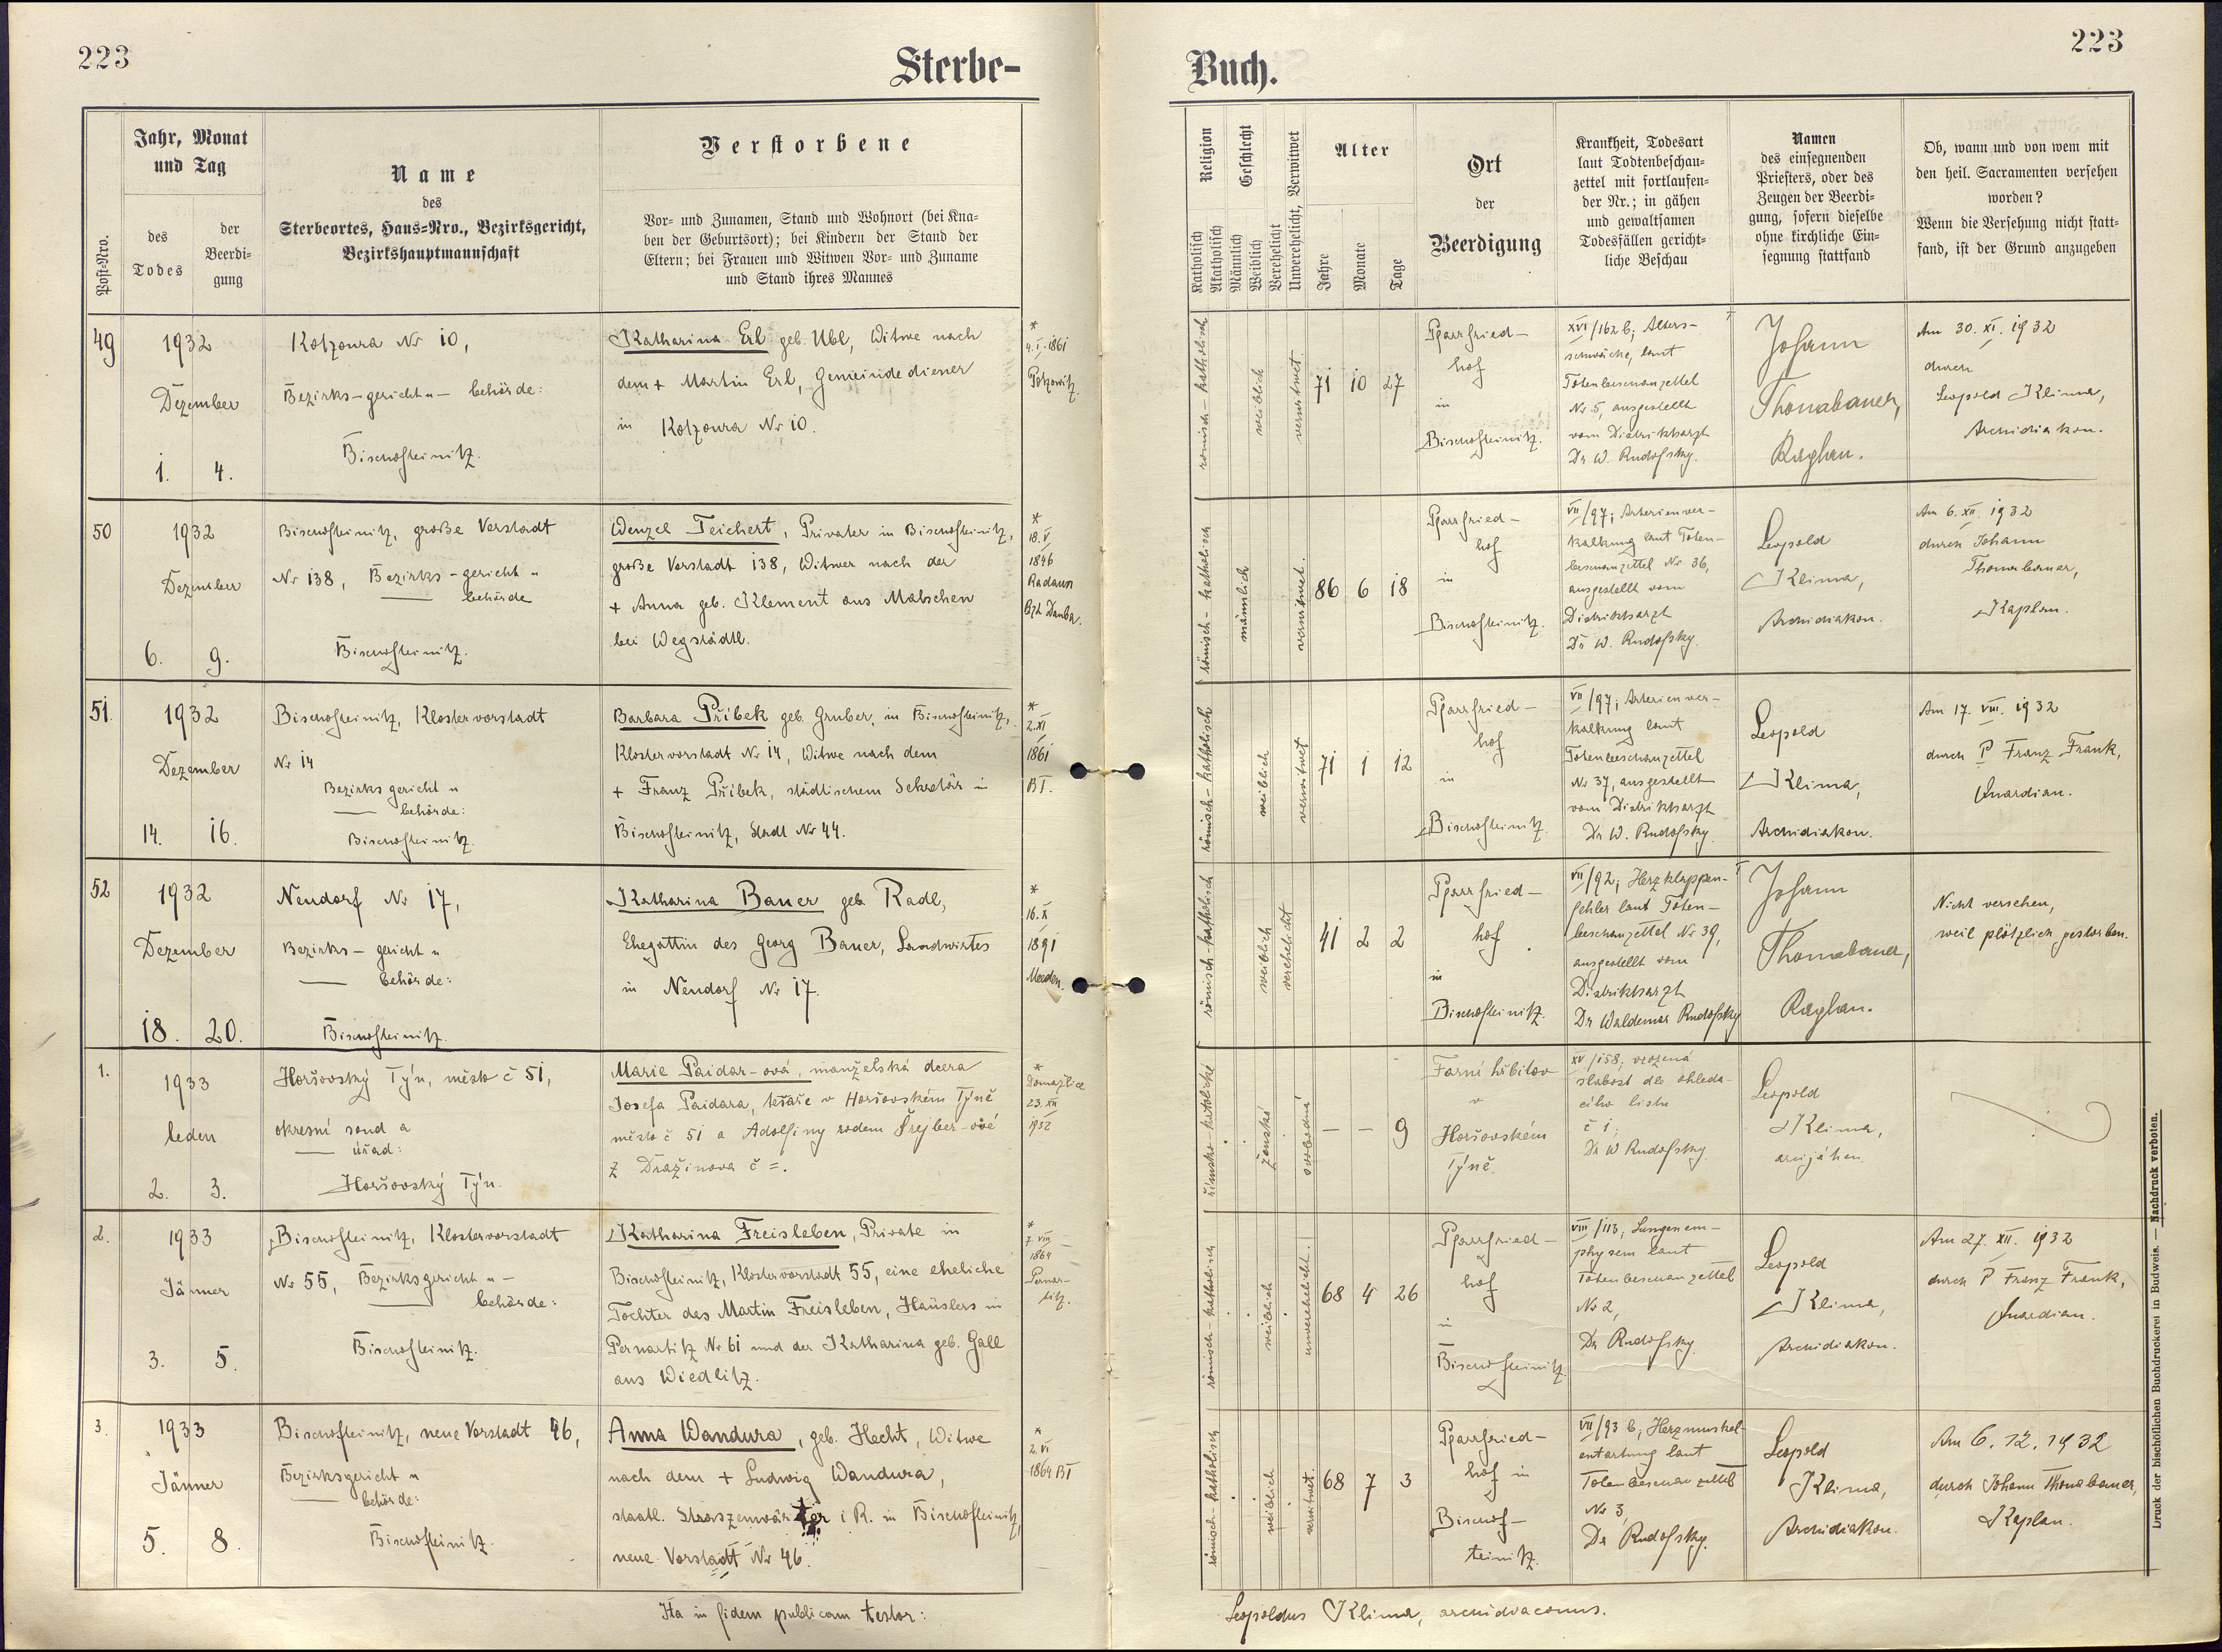 223
Sterbe-
Buch.
223
Post-Nro.
Jahr, Monat
und Tag
des
Todes
der
Beerdi-
gung
Name
des
Sterbeortes, Haus-Nro., Bezirksgericht,
Bezirkshauptmannschaft
Verstorbene
Vor- und Zunamen, Stand und Wohnort (bei Kna-
ben der Geburtsort); bei Kindern der Stand der
Eltern; bei Frauen und Witwen Vor- und Zuname
und Stand ihres Mannes
Religion
Katholisch
Akatholisch
Geschlecht
Männlich
Weiblich
Verehelicht
Unverehelicht, Verwitwet
Alter
Jahre
Monate
Tage
Ort
der
Beerdigung
Krankheit, Todesart
laut Todtenbeschau-
zettel mit fortlaufen-
der Nr.; in gähen
und gewaltsamen
Todesfällen gericht-
liche Beschau
Namen
des einsegnenden
Priesters, oder des
Zeugen der Beerdi-
gung, sofern dieselbe
ohne kirchliche Ein-
segnung stattfand
Ob, wann und von wem mit
den heil. Sacramenten versehen
worden?
Wenn die Versehung nicht statt-
fand, ist der Grund anzugeben
49
1932
Dezember
1. 4.
Kotzoura Nr 10,
Bezirks-gericht u- behörde:
Bischofteinitz.
Katharina Erl geb. Ubl, Witwe nach
dem + Martin Erl, Gemeindediener
in Kotzoura Nr 10.
*
4.I.1861
Potzowitz.
römisch-katholisch
weiblich
verwitwet
71 10 27
Pfarrfried-
hof
in
Bischofteinitz.
XVI/162 b; Alters-
schwäche, laut
Totenbeschauzettel
Nr 5, ausgestellt
vom Distriktsarzt
Dr W. Rudofsky.
Johann
Thomabauer,
Kaplan.
Am 30. XI. 1932
durch
Leopold Klima,
Archidiakon.
50
1932
Dezember
6. 9.
Bischofteinitz, große Vorstadt
Nr 138, Bezirks-gericht u
behörde
Bischofteinitz.
Wenzel Teichert, Privater in Bischofteinitz,
große Vorstadt 138, Witwer nach der
+ Anna geb. Klement aus Mabschen
bei Wegstädtl.
*
18.V.
1846
Radaun
Bzh Dauba.
römisch-katholisch
männlich
verwitwet.
86 6 18
Pfarrfried-
hof
in
Bischofteinitz.
VII/97; Arterienver-
kalkung laut Toten-
beschauzettel Nr 36,
ausgestellt vom
Distriktsarzt
Dr W. Rudofsky.
Leopold
Klima,
Archidiakon.
Am 6. XII. 1932
durch Johann
Thomabauer,
Kaplan.
51.
1932
Dezember
14. 16.
Bischofteinitz, Klostervorstadt
Nr 14
Bezirksgericht u
behörde:
Bischofteinitz.
Barbara Příbek geb. Gruber, in Bischofteinitz,
Klostervorstadt Nr 14, Witwe nach dem
+ Franz Příbek, städtischem Sekretär in
Bischofteinitz, Stadt Nr 44.
*
2.XI
1861
BT.
römisch-katholisch
weiblich
verwitwet
71 1 12
Pfarrfried-
hof
in
Bischofteinitz.
VII/97; Arterienver-
kalkung laut
Totenbeschauzettel
Nr 37, ausgestellt
vom Distriktsarzt
Dr W. Rudofsky.
Leopold
Klima,
Archidiakon.
Am 17. VIII. 1932
durch P Franz Frank,
Guardian.
52
1932
Dezember
18. 20.
Neudorf Nr 17,
Bezirks-gericht u
behörde:
Bischofteinitz.
Katharina Bauer geb. Radl,
Ehegattin des Georg Bauer, Landwirtes
in Neudorf Nr 17.
*
16.X
1891
römisch-katholisch
weiblich
verehelicht
41 2 2
Pfarrfried-
hof
in
Bischofteinitz.
VII/92; Herzklappen-
fehler laut Toten-
beschauzettel Nr 39,
ausgestellt vom
Distriktsarzt
Dr Waldemar Rudofsky
Johann
Thomabauer,
Kaplan.
Nicht versehen,
weil plötzlich gestorben.
1.
1933
leden
2. 3.
Horšovský Týn, město č 51,
okresní soud a
úřad:
Horšovský Týn.
Marie Paidar-ová, manželská dcera
Josefa Paidara, tesaře v Horšovském Týně
město č 51 a Adolfiny rodem Šrejber-ové
z Dražinova č =.
*
Domažlice
23.XII
1932
římsko-katolické
ženské
svobodná
— — 9
Farní hřbitov
v
Horšovském
Týně.
XV/158; vrozená
slabost dle ohleda-
cího listu
č 1;
Dr W Rudofsky
Leopold
Klima,
arcijáhen.
2.
1933
Jänner
3. 5.
Bischofteinitz, Klostervorstadt
Nr 55, Bezirksgericht u-
behörde:
Bischofteinitz.
Katharina Freisleben, Private in
Bischofteinitz, Klostervorstadt 55, eine eheliche
Tochter des Martin Freisleben, Häuslers in
Pernartitz Nr 61 und der Katharina geb. Gall
aus Wiedlitz.
*
7.VIII
1864
Pernar-
titz.
römisch-katholisch
weiblich
unverehelicht.
68 4 26
Pfarrfried-
hof
in
Bischofteinitz.
VIII/113, Lungenem-
physem laut
Totenbeschauzettel
Nr 2,
Dr Rudofsky.
Leopold
Klima,
Archidiakon.
Am 27. XII. 1932
durch P Franz Frank,
Guardian.
3.
1933
Jänner
5. 8.
Bischofteinitz, neue Vorstadt 46,
Bezirksgericht u
behörde:
Bischofteinitz.
Anna Wandura, geb. Hecht, Witwe
nach dem + Ludwig Wandura,
staatl. Straszenwärter i R. in Bischofteinitz,
neue Vorstadt Nr 46.
*
2.VI
1864 BT
römisch-katholisch
weiblich
verwitwet.
68 7 3
Pfarrfried-
hof in
Bischof-
teinitz.
VII/93 b, Herzmuskel-
entartung laut
Totenbeschauzettel
Nr 3,
Dr Rudofsky.
Leopold
Klima,
Archidiakon.
Am 6. 12. 1932
durch Johann Thomabauer,
Kaplan.
Ita in fidem publicam testor:
Leopoldus Klima, archidiaconus.
Druck der bischöflichen Buchdruckerei in Budweis. — Nachdruck verboten.